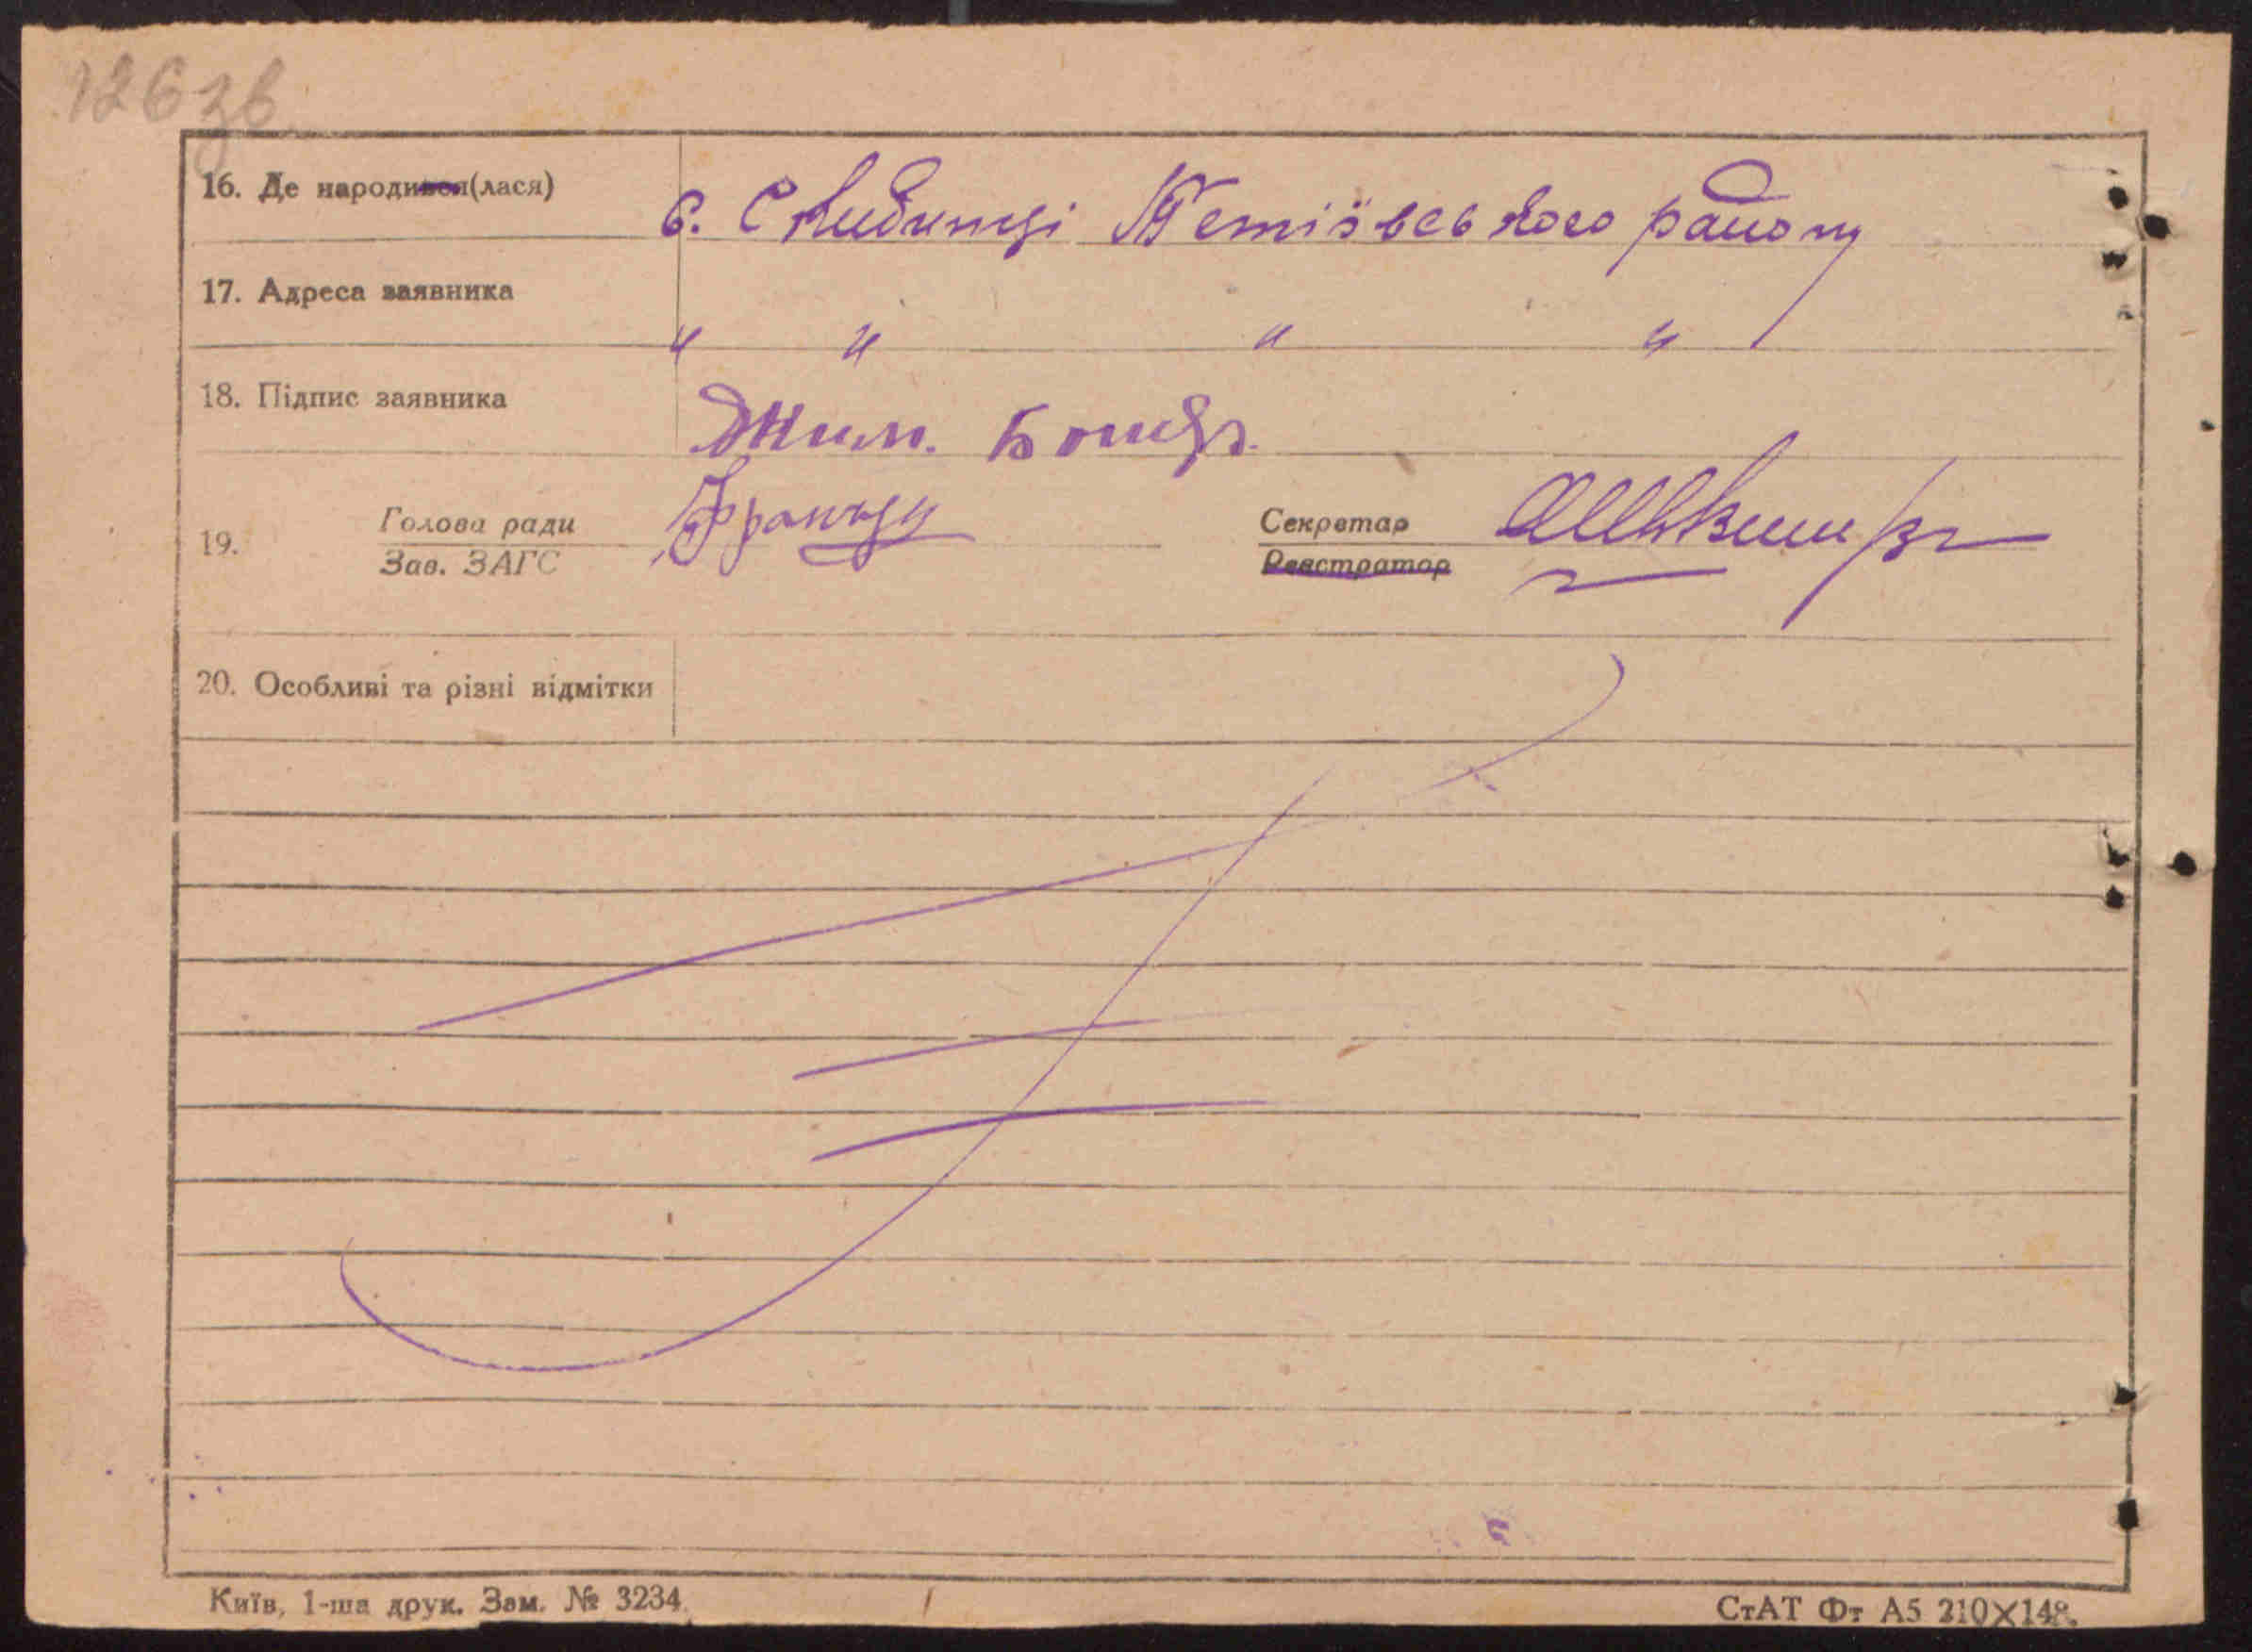 126зв
16. Де народився(лася) с. Скибинці Тетіївського району
17. Адреса заявника " " " "
18. Підпис заявника
19. Голова ради Секретар
Зав. ЗАГС Реєстратор
20. Особливі та різні відмітки
Київ, 1-ша друк. Зам. № 3234.
СтАТ Фт А5 210×148.